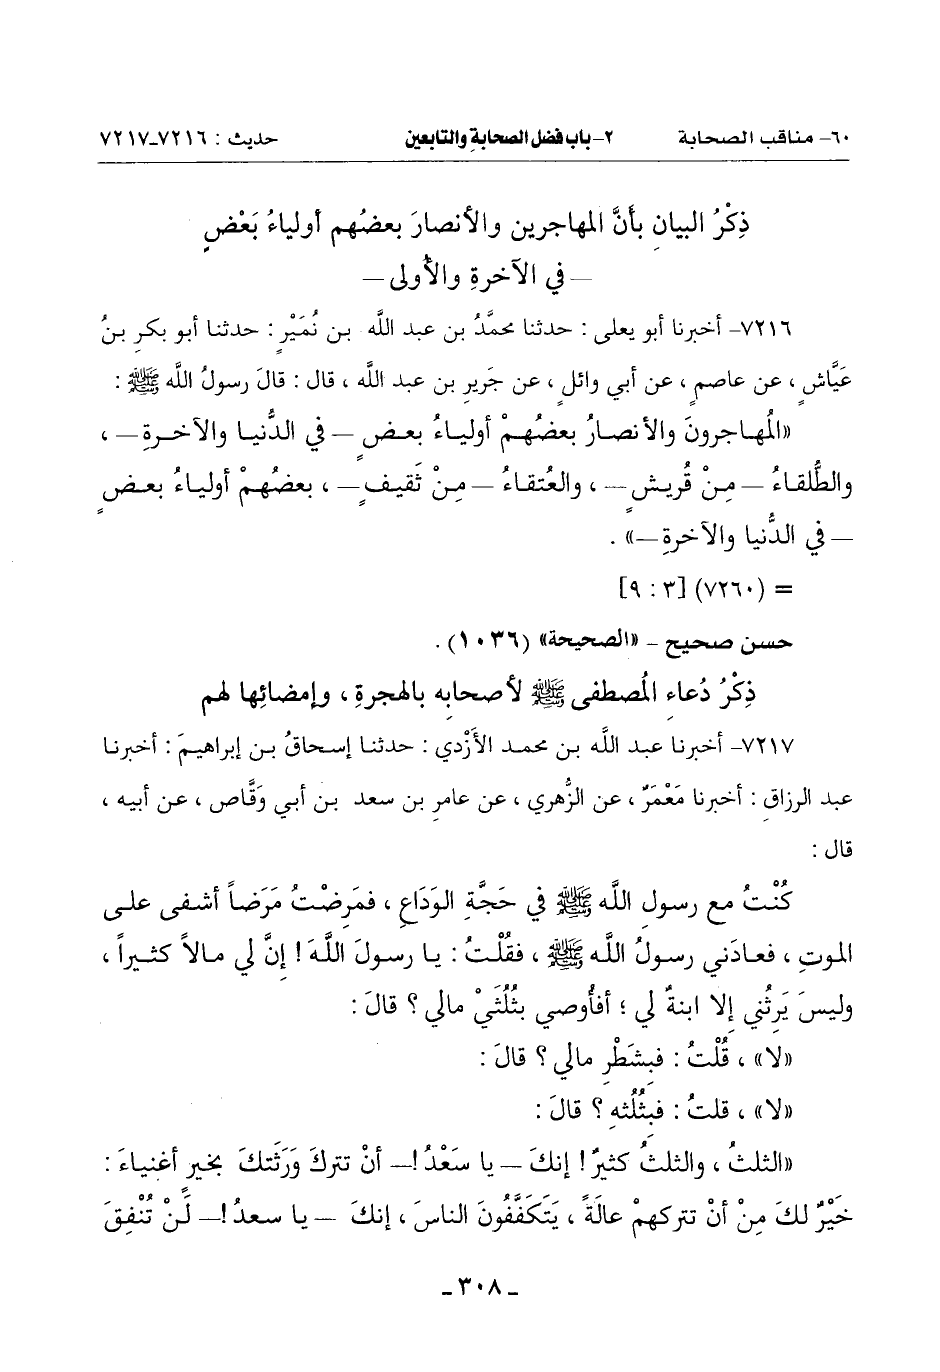 ٦٠- مناقب الصحابة ٢- باب فضل الصحابة والتابعين حديث : ٧٢١٦-٧٢١٧
ذِكْرُ البيانِ بأنَّ المهاجرين والأنصارَ بعضُهم أولياءُ بَعْضٍ
– في الآخرةِ والأُولى –
٧٢١٦- أخبرنا أبو يعلى : حدثنا محمَّدُ بن عبد اللَّه بن نُمَيْرٍ : حدثنا أبو بكرِ بنُ
عَيَّاشٍ ، عن عاصمٍ ، عن أبي وائلٍ ، عن جَريرِ بن عبد اللَّه ، قال : قالَ رسولُ اللَّه ﷺ :
«المُهاجرونَ والأنصارُ بعضُهمْ أولياءُ بعضٍ – في الدُّنيا والآخرةِ – ،
والطُّلقاءُ – مِنْ قُريشٍ – ، والعُتقاءُ – مِنْ ثَقيفٍ – ، بعضُهمْ أولياءُ بعضٍ
– في الدُّنيا والآخرةِ –» .
= (٧٢٦٠) [٣ : ٩]
حسن صحيح – «الصحيحة» (١٠٣٦) .
ذِكْرُ دُعاءِ المُصطفى ﷺ لأصحابِه بالهجرةِ ، وإمضائِها لهم
٧٢١٧- أخبرنا عبد اللَّه بن محمد الأزْدي : حدثنا إسحاقُ بن إبراهيمَ : أخبرنا
عبد الرزاقِ : أخبرنا مَعْمَرٌ ، عن الزُّهري ، عن عامرِ بن سعد بن أبي وَقَّاص ، عن أبيه ،
قال :
كُنْتُ مع رسولِ اللَّه ﷺ في حَجَّةِ الوَدَاعِ ، فمَرِضْتُ مَرَضاً أشفى على
الموتِ ، فعادَني رسولُ اللَّه ﷺ ، فقُلْتُ : يا رسولَ اللَّهِ ! إنَّ لي مالاً كثيراً ،
وليسَ يَرِثُني إلا ابنةٌ لي ؛ أفأُوصي بثُلُثَيْ مالي ؟ قالَ :
«لا» ، قُلْتُ : فبِشَطْرِ مالي ؟ قالَ :
«لا» ، قلتُ : فبِثُلُثِه ؟ قالَ :
«الثلثُ ، والثلثُ كثيرٌ ! إنكَ – يا سَعْدُ !– أنْ تتركَ وَرَثَتكَ بخيرٍ أغنياءَ :
خَيْرٌ لكَ مِنْ أنْ تتركهمْ عالَةً ، يَتَكَفَّفُونَ الناسَ ، إنكَ – يا سعدُ !– لَنْ تُنْفِقَ
- ٣٠٨ -